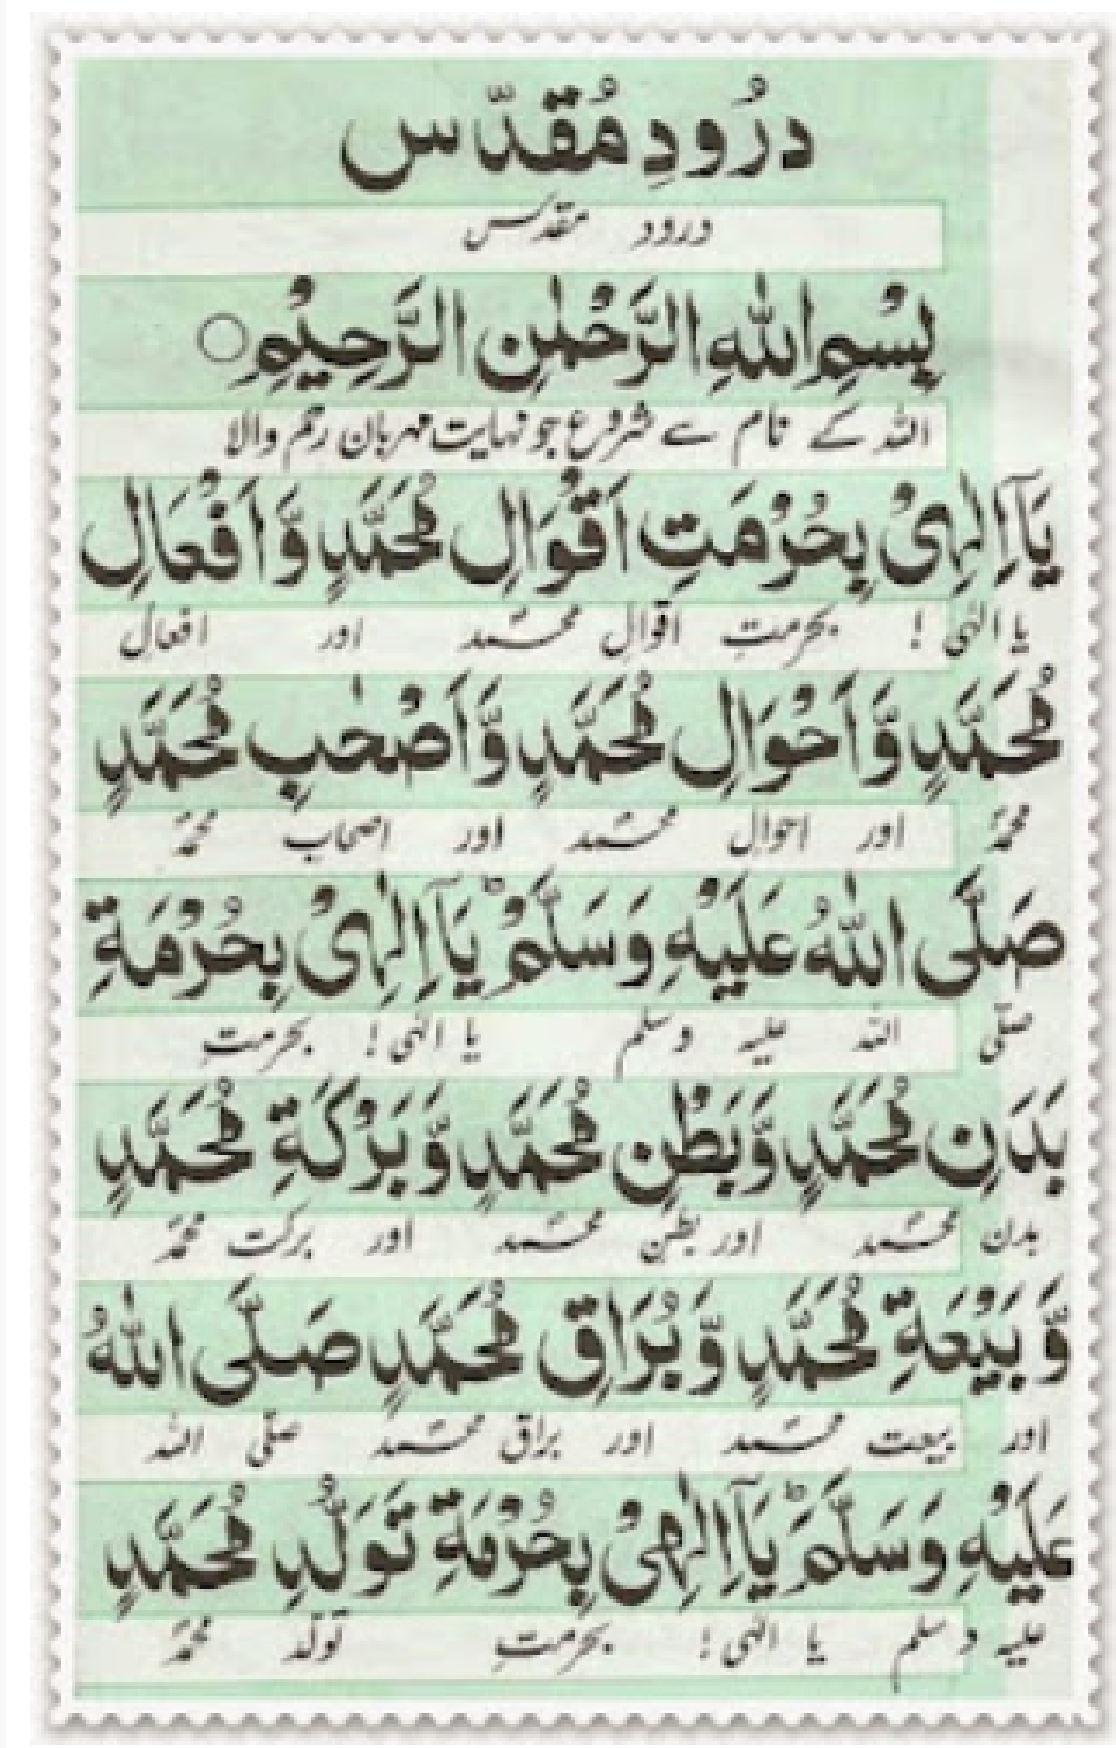 دُرُودِ مُقَدَّس
درود مقدس
بِسْمِ اللّٰهِ الرَّحْمٰنِ الرَّحِيْمِ○
اللہ کے نام سے شروع جو نہایت مہربان رحم والا
يَآ اِلٰهِىْ بِحُرْمَتِ اَقْوَالِ مُحَمَّدٍ وَّاَفْعَالِ
یا الٰہی ! بحرمتِ اقوال محمّد اور افعال
مُحَمَّدٍ وَّاَحْوَالِ مُحَمَّدٍ وَّاَصْحٰبِ مُحَمَّدٍ
محمدؐ اور احوال محمّد اور اصحاب محمدؐ
صَلَّى اللّٰهُ عَلَيْهِ وَسَلَّمَؕ يَآ اِلٰهِىْ بِحُرْمَةِ
صلّی اللہ علیہ وسلم یا الٰہی ! بحرمتِ
بَدَنِ مُحَمَّدٍ وَّبَطْنِ مُحَمَّدٍ وَّبَرْكَةِ مُحَمَّدٍ
بدن محمّد اور بطن محمّد اور برکت محمدؐ
وَّبَيْعَةِ مُحَمَّدٍ وَّبُرَاقِ مُحَمَّدٍ صَلَّى اللّٰهُ
اور بیعت محمّد اور براق محمّد صلّی اللہ
عَلَيْهِ وَسَلَّمَؕ يَآ اِلٰهِىْ بِحُرْمَةِ تَوَلُّدِ مُحَمَّدٍ
علیہ وسلم یا الٰہی ! بحرمتِ تولّد محمدؐ